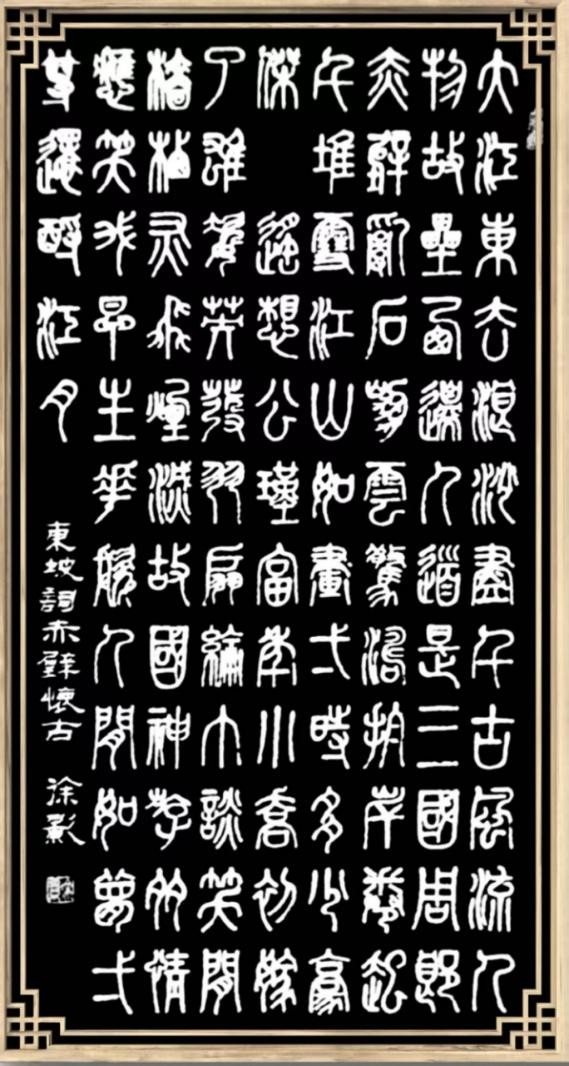 大江東去浪沙盡千古風流人
物故壘西邊人道是三國周郎
赤壁亂石崩雲驚濤拍岸卷起
千堆雪江山如畫弌時多少豪
傑 遙想公瑾當年小喬初嫁
了雄姿英發羽扇綸巾談笑間
檣櫓灰飛煙滅故國神游多情
應笑我早生華髮人間如夢弌
尊還酹江月
東坡詞赤壁懷古 徐